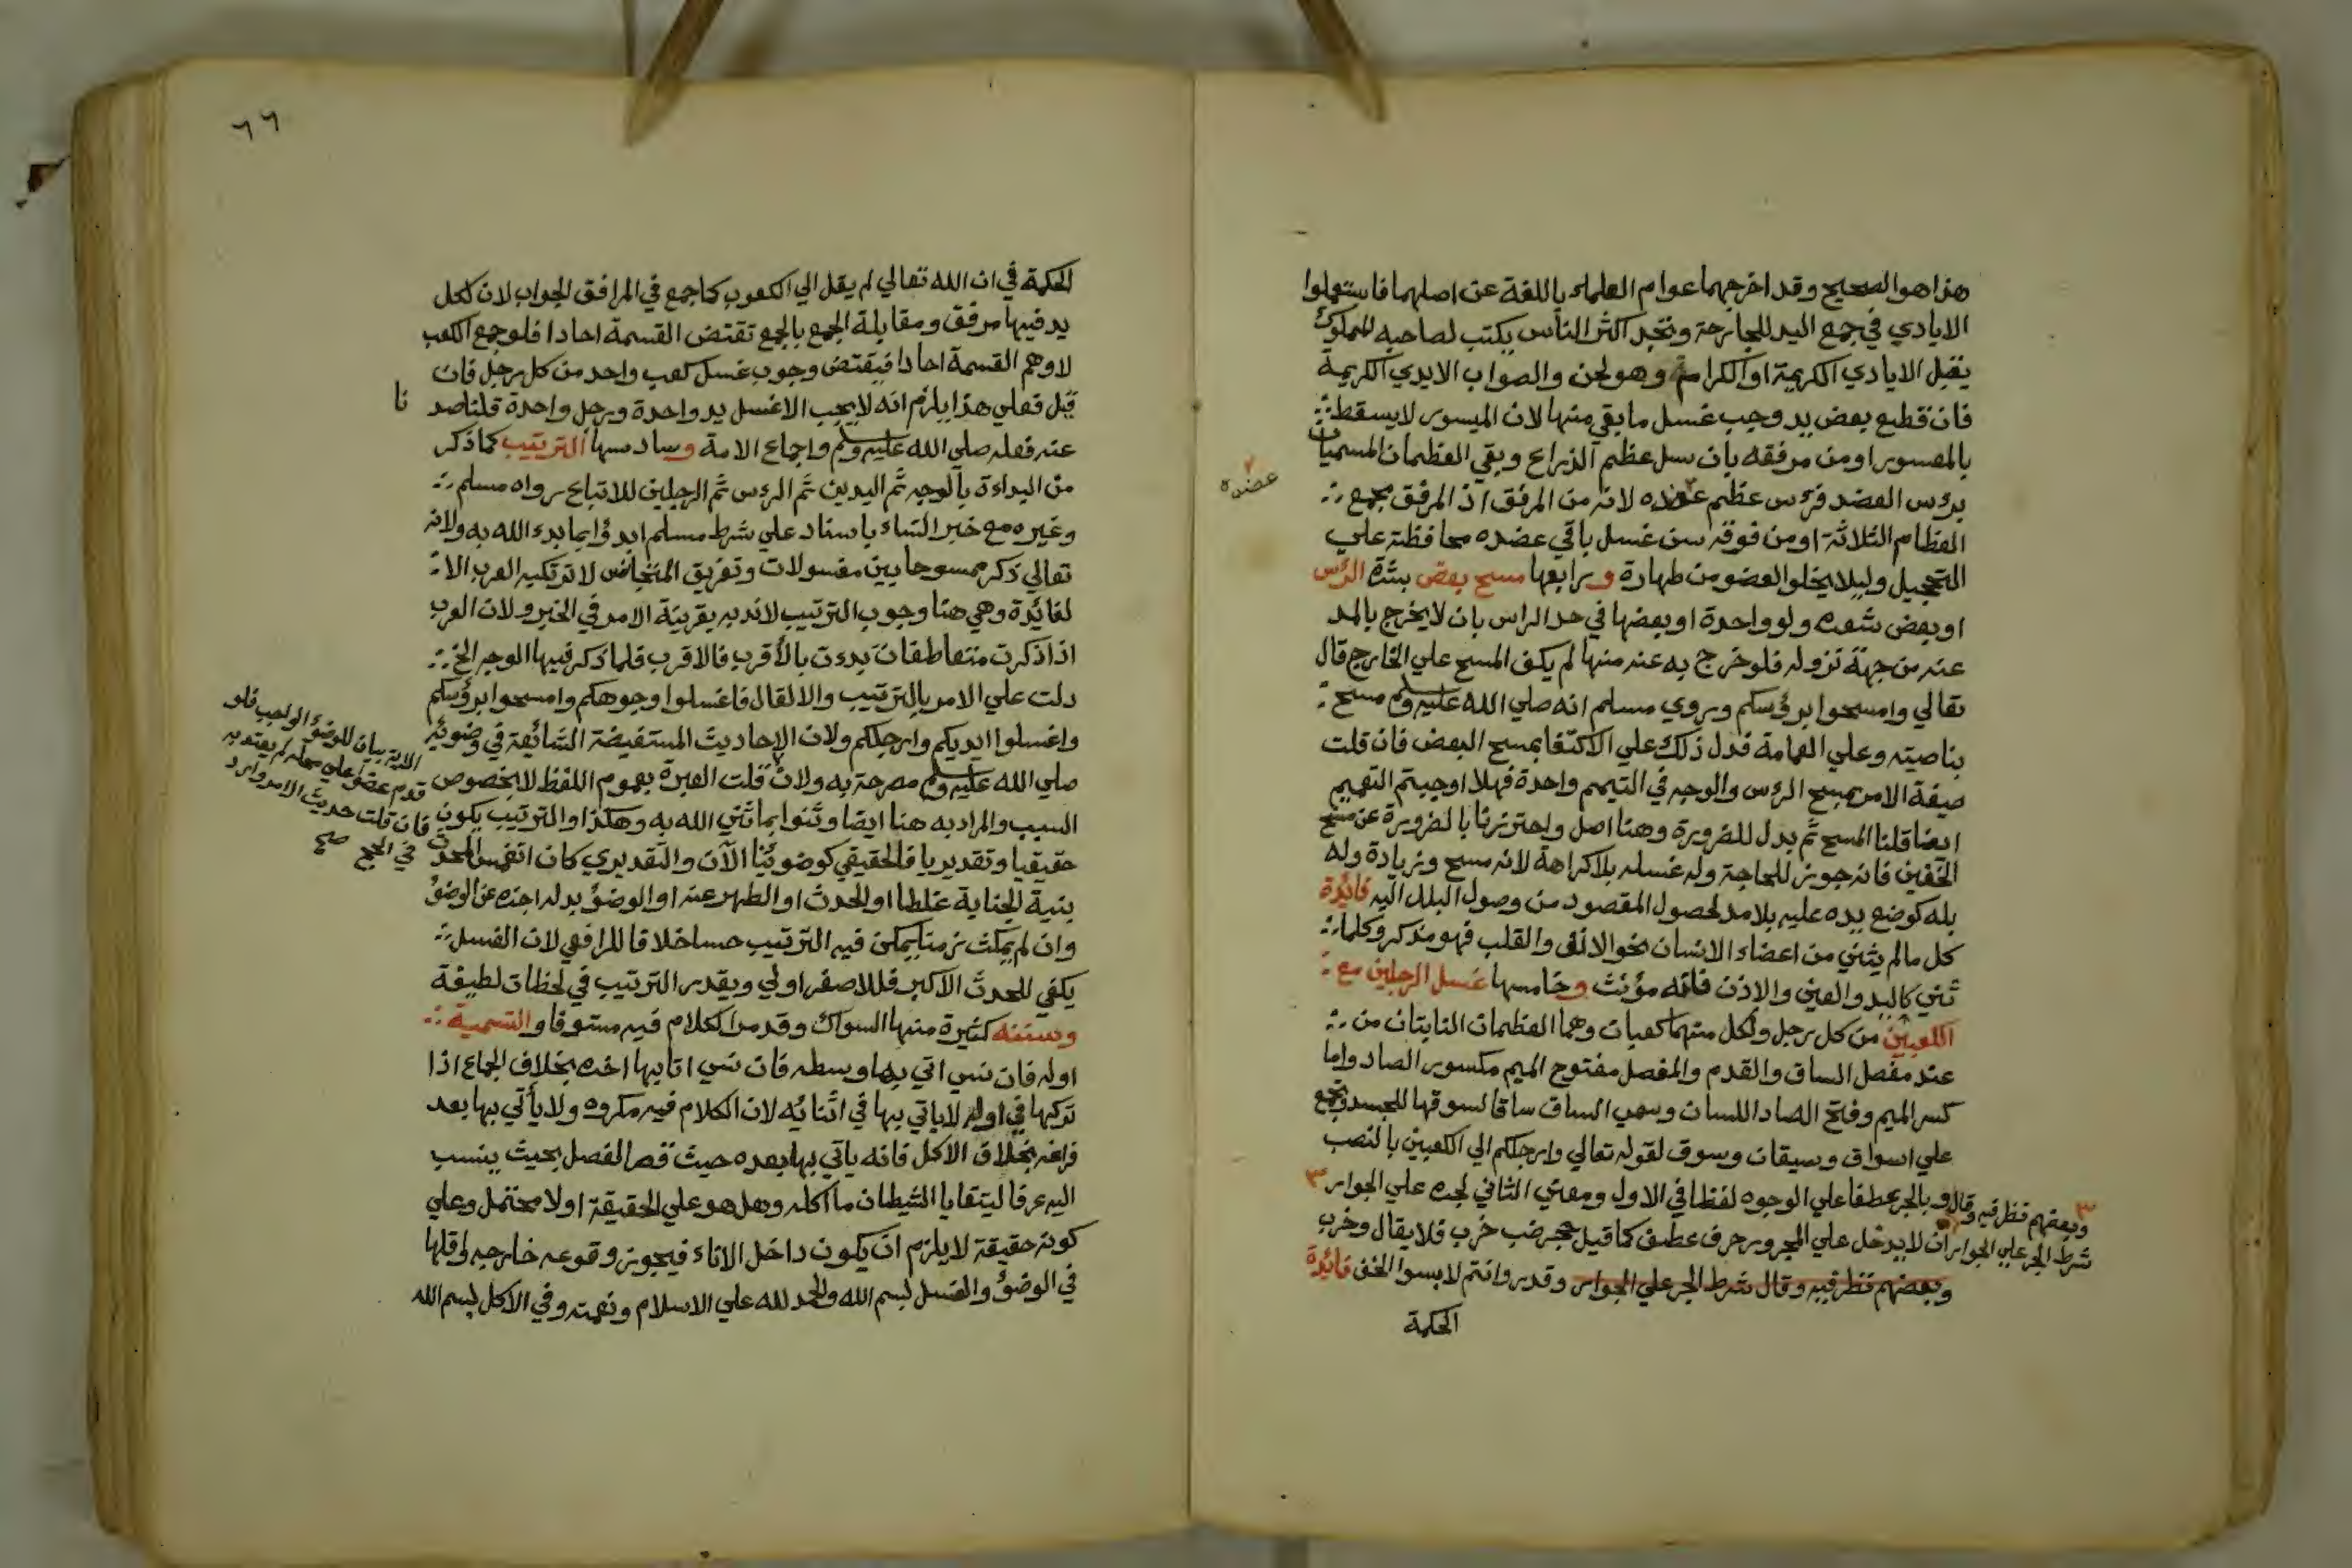 هذا هو الصحيح وقد اخرجهما عوام العلماء باللغة عن اصلهما فاستعملوا
الايادي في جمع اليد للجارحة وتجد اكثر الناس يكتب لصاحبه المملوك
يقبل الايادي الكريمة او الكرام وهو لحن والصواب الايدي الكريمة
فان قطع بعض يد وجب غسل ما بقي منها لان الميسور لا يسقط
بالمعسور او من مرفقه بان سل عظم الذراع وبقي العظمان المسميان
برؤس العضد فرؤس عظم عضده لانه من المرفق اذ المرفق مجمع
عضده
العظام الثلاثة او من فوقه سن غسل باقي عضده محافظة علي
التحجيل وليلا يخلو العضو من طهارة ورابعها مسح بعض بشرة الرؤس
او بعض شعره ولو واحدة او بعضها في حد الراس بان لا يخرج بالمد
عنه من جهة نزوله فلو خرج به عنه منها لم يكف المسح علي الخارج قال
تعالي وامسحوا برؤسكم وروي مسلم انه صلي الله عليه وسلم مسح
بناصيته وعلي العمامة فدل ذلك علي الاكتفا بمسح البعض فان قلت
صيغة الامر بمسح الرؤس والوجه في التيمم واحدة فهلا اوجبتم التعميم
ايضا قلنا المسح ثم بدل للضرورة وهنا اصل واحترزنا بالضرورة عن مسح
الخفين فانه جوز للحاجة وله غسله بلا كراهة لانه مسح وزيادة وله
بله كوضع يده عليه بلا مد لحصول المقصود من وصول البلل اليه فائدة
كل ما لم يثني من اعضاء الانسان نحو الانف والقلب فهو مذكر وكلما
ثني كاليد والعين والاذن فانه مؤنث وخامسها غسل الرجلين مع
الكعبين من كل رجل ولكل منهما كعبان وهما العظمان الناتيان من
عند مفصل الساق والقدم والمفصل مفتوح الميم مكسور الصاد واما
كسر الميم وفتح الصاد اللسان وسمي الساق ساقا لسوقها للجسد وتجمع
علي اسواق وسيقان وسوق لقوله تعالي وارجلكم الي الكعبين بالنصب
وبالجر عطفا علي الوجوه لفظا في الاول ومعني الثاني لجره علي الجوار ٣
٣ وبعضهم نظر فيه وقال
شرط الجر علي الجوار ان لا يدخل علي المجرور حرف عطف كما قيل جحر ضب خرب فلا يقال وخرب
وبعضهم نظر فيه وقال شرط الجر علي الجوار وقدر وانتم لابسوا الخف فائدة
الحكمة
٦٦
الحكمة في ان الله تعالي لم يقل الي الكعوب كما جمع في المرافق الجواب لان لكل
يد فيها مرفق ومقابلة الجمع بالجمع تقتض القسمة احادا فلو جمع الكعب
لاوهم القسمة احادا فيقتض وجوب غسل كعب واحد من كل رجل فان
قيل فعلي هذا يلزم انه لا يجب الا غسل يد واحدة ورجل واحدة قلنا صد
نا
عنه فعله صلي الله عليه وسلم واجماع الامة وسادسها الترتيب كما ذكر
من البداءة بالوجه ثم اليدين ثم الرؤس ثم الرجلين للاتباع رواه مسلم
وغيره مع خبر النساء باسناد علي شرط مسلم ابدؤا بما بدء الله به ولانه
تعالي ذكر ممسوحا بين مغسولات وتفريق المتجانس لا ترتكبه العرب الا
لفائدة وهي هنا وجوب الترتيب لا ندبه بقرينة الامر في الخبر ولان العرب
اذا ذكرت متعاطفات بدءت بالأقرب فالاقرب فلما ذكر فيها الوجه الخ
دلت علي الامر بالترتيب والا لقال فاغسلوا وجوهكم وامسحوا برؤسكم
واغسلوا ايديكم وارجلكم ولان الاحاديث المستفيضة الشائعة في وضوئه
صلي الله عليه وسلم مصرحة به ولان قلت العبرة بعموم اللفظ لا بخصوص
الاية بيان للوضؤ الواجب فلو
قدم عضوا علي محله لم يعتد به
فان قلت حديث الامر وارد
في الحج صح
السبب والمراد به هنا ايضا وثنوا بما ثني الله به وهكذا والترتيب يكون
حقيقيا وتقديريا فالحقيقي كوضوئنا الآن والتقديري كان انغمس المحدث
بنية الجنابة غلطا او الحدث او الطهر عنه او الوضؤ بدله اجزه عن الوضؤ
وان لم يمكث زمنا يمكن فيه الترتيب حسا خلافا للرافعي لان الغسل
يكفي للحدث الاكبر فللاصغر اولي ويقدر الترتيب في لحظات لطيفة
وسننه كثيرة منها السواك وقد مر الكلام فيه مستوفا والتسمية
اوله فان نسي اتي بها وسطه فان نسي اتا بها اخره بخلاف الجماع اذا
تركها في اوله لا ياتي بها في اثنائه لان الكلام فيه مكروه ولا يأتي بها بعد
فراغه بخلاف الاكل فانه يأتي بها بعده حيث قصر الفصل بحيث ينسب
اليه عرفا ليتقايا الشيطان ما اكله وهل هو علي الحقيقة او لا محتمل وعلي
كونه حقيقة لا يلزم ان يكون داخل الاناء فيجوز وقوعه خارجه واقلها
في الوضؤ والغسل بسم الله والحمد لله علي الاسلام ونعمته وفي الاكل بسم الله